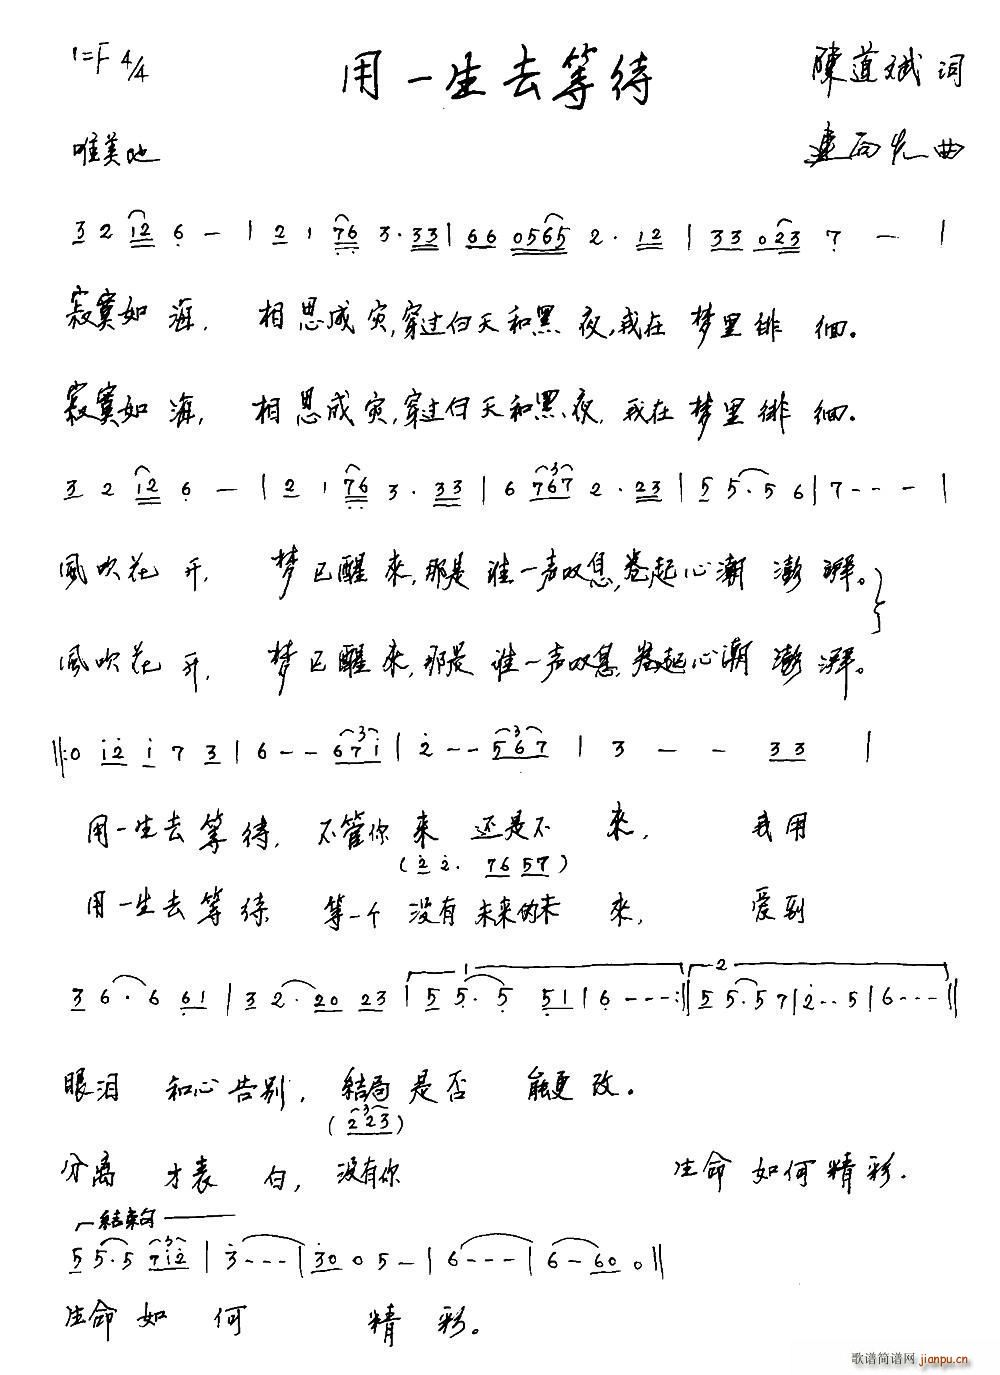 1=F 4/4
用一生去等待
陳道斌 词
唯美地
曲
3 2 12 6 — | 2 1 76 3· 33 | 66 0565 2· 12 | 33 023 7 — |
寂寞如海, 相思成灾,穿过白天和黑夜,我在梦里徘徊。
寂寞如海, 相思成灾,穿过白天和黑夜,我在梦里徘徊。
3 2 12 6 — | 2 1 76 3· 33 | 6 767 2· 23 | 5 5· 5 6 | 7 - - - |
風吹花开, 梦已醒来,那是谁一声叹息,卷起心潮澎湃。
風吹花开, 梦已醒来,那是谁一声叹息,卷起心潮澎湃。
‖: 0 12 1 7 3 | 6 - - 671 | 2 - - 567 | 3 — — 33 |
用一生去等待, 不管你来还是不来, 我用
(2 2· 76 57)
用一生去等待 等一个没有未来的未來, 爱到
1 2
3 6· 6 61 | 3 2· 20 23 | 5 5· 5 51 | 6 - - - :‖ 5 5· 5 7 | 2 - - 5 | 6 - - - ‖
眼泪和心告别, 结局是否能更改。
(223)
分离才表白, 没有你 生命如何精彩.
结束句
5 5· 5 712 | 3 - - - | 30 0 5 — | 6 - - - | 6 — 60 0 ‖
生命如何精彩。
歌谱简谱网 jianpu.cn